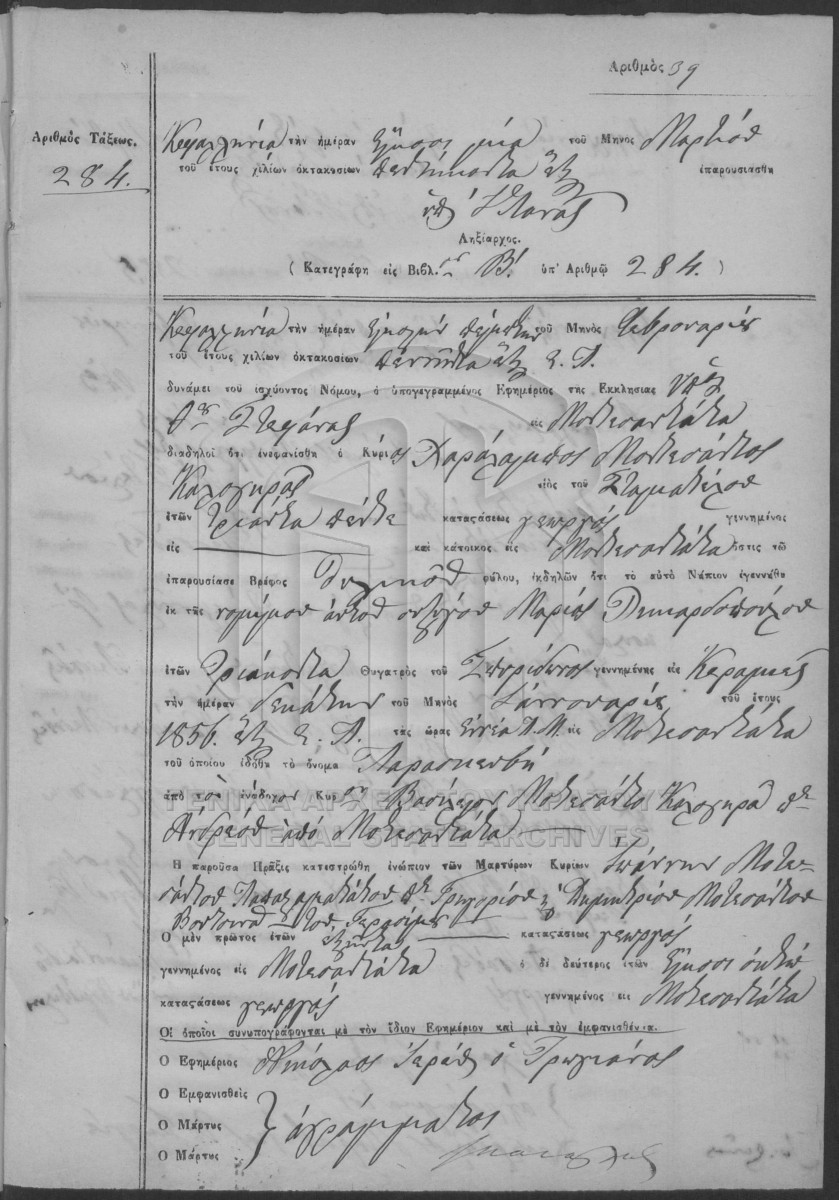 Αριθμὸς 39
Αριθμὸς Τάξεως.
284.
Κεφαλληνία τὴν ἡμέραν εἴκοσι μία τοῦ Μηνος Μαρτίου
τοῦ ἔτους χιλίων ὀκτακοσίων πεντήκοντα ἓξ ἐπαρουσιάσθη
Ληξίαρχος.
( Κατεγράφη εἰς Βιβλ. Β! ὑπ' Αριθμῷ 284. )
Κεφαλληνία τὴν ἡμέραν εἰκοστὴν πέμπτην τοῦ Μηνὸς Φεβρουαρίου
τοῦ ἔτους χιλίων ὀκτακοσίων πενήντα ἓξ Ε. Π.
δυνάμει τοῦ ἰσχύοντος Νόμου, ὁ ὑπογεγραμμένος Εφημέριος τῆς Εκκλησίας
Στεφάνου εἰς Μοτεσαντάτα
διαδηλοῖ ὅτι ἐνεφανίσθη ὁ Κύριος Χαράλαμπος Μοτεσάντος
Καλογηρᾶς υἱὸς τοῦ Σταματέλου
ἐτῶν τριάντα πέντε καταςάσεως γεωργός γεννημένος
εἰς καὶ κάτοικος εἰς Μοτεσαντάτα ὅστις τῷ
ἐπαρουσίασε Βρέφος θηλυκοῦ φύλου, ἐκδηλῶν ὅτι τὸ αὐτὸ Νήπιον ἐγεννήθη
ἐκ τῆς νομίμου αὐτοῦ συζύγου Μαρίας
ἐτῶν τριάκοντα Θυγατρὸς τοῦ Σπυρίδωνος γεννημένης εἰς Κεραμιές
τὴν ἡμέραν δεκάτην τοῦ Μηνὸς Ἰαννουαρίου τοῦ ἔτους
1856. ἓξ Ε. Π. τὰς ὥρας ἐννέα Π.Μ. εἰς Μοτεσαντάτα
τοῦ ὁποίου ἐδόθη τὸ ὄνομα Παρασκευὴ
ἀπὸ τὸν ἀνάδοχον Κύρ Βασίλειον Μοτεσάντο Καλογηρᾶ
Ἀνδρέου ἀπὸ Μοτεσαντάτα
Η παροῦσα Πρᾶξις κατεστρώθη ἐνώπιον τῶν Μαρτύρων Κυρίων Ἰωάννην Μοτε-
σάντου Γρηγορίου Δημητρίου Μοτεσάντου
Γερασίμου
Ο μὲν πρῶτος ἐτῶν ἑξήντα καταςάσεως γεωργός
γεννημένος εἰς Μοτεσαντάτα ὁ δὲ δεύτερος ἐτῶν εἴκοσι ὀκτώ
καταςάσεως γεωργός γεννημένος εις Μοτεσαντάτα
Οἱ ὁποῖοι συνυπογράφονται μὲ τὸν ἴδιον Εφημέριον καὶ μὲ τὸν ἐμφανισθέντα.
Ο Εφημέριος Νικόλαος Ἱερεὺς ὁ
Ο Εμφανισθεὶς
Ο Μάρτυς ἀγράμματος
Ο Μάρτυς
ΓΕΝΙΚΑ ΑΡΧΕΙΑ ΤΟΥ ΚΡΑΤΟΥΣ
GENERAL STATE ARCHIVES